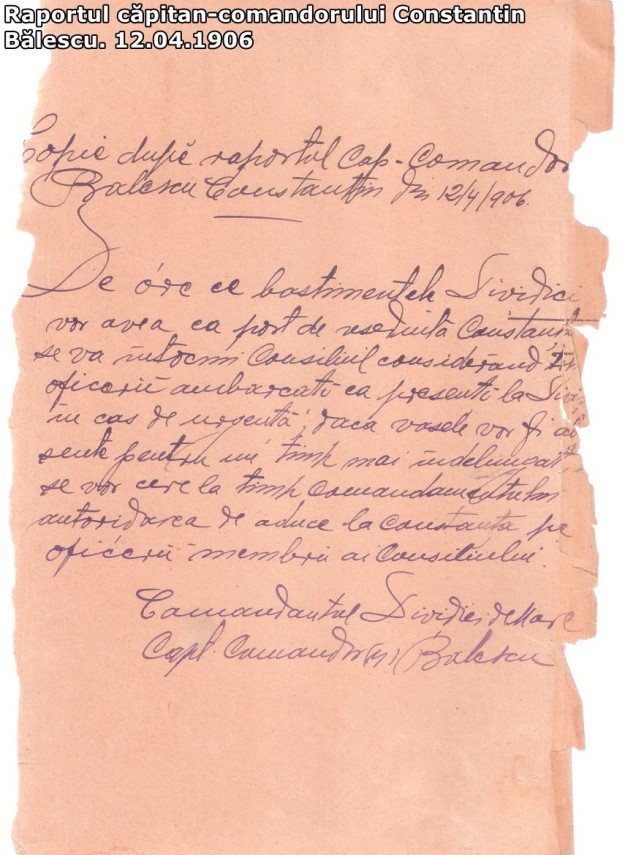 Raportul căpitan-comandorului Constantin
Bălescu. 12.04.1906
Copie după raportul Cap-Comandor
Balescu Constantin din 12/4/906.
De óre ce bastimentele Diviziei
vor avea ca port de reședință Constanța
se va întocmi Consiliul considerând
oficerii ambarcati ca presenti la
in cas de urgentă; daca vasele vor fi
sente pentru un timp mai indelungat,
se vor cere la timp Comandamentului
autorizarea de aduce la Constanța pe
oficerii membrii ai Consiliului.
Comandantul Diviziei de Mare
Capt. Comandor (ss) Balescu